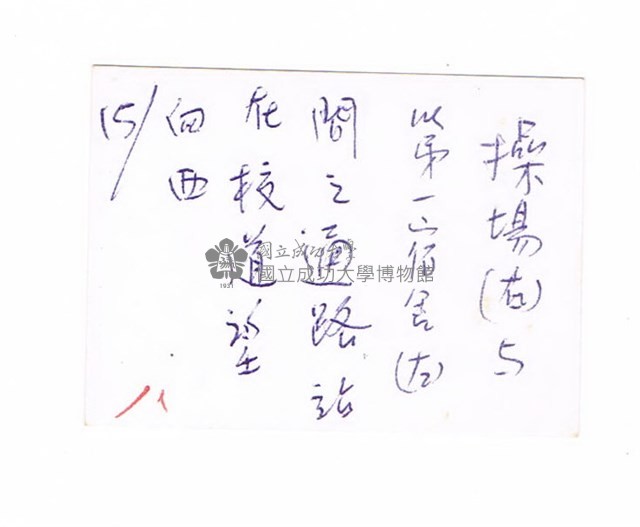 操場(右)与
以第一宿舍(左)
間之通路站
在校道望
向西
15/
八
國立成功大學
國立成功大學博物館
1931